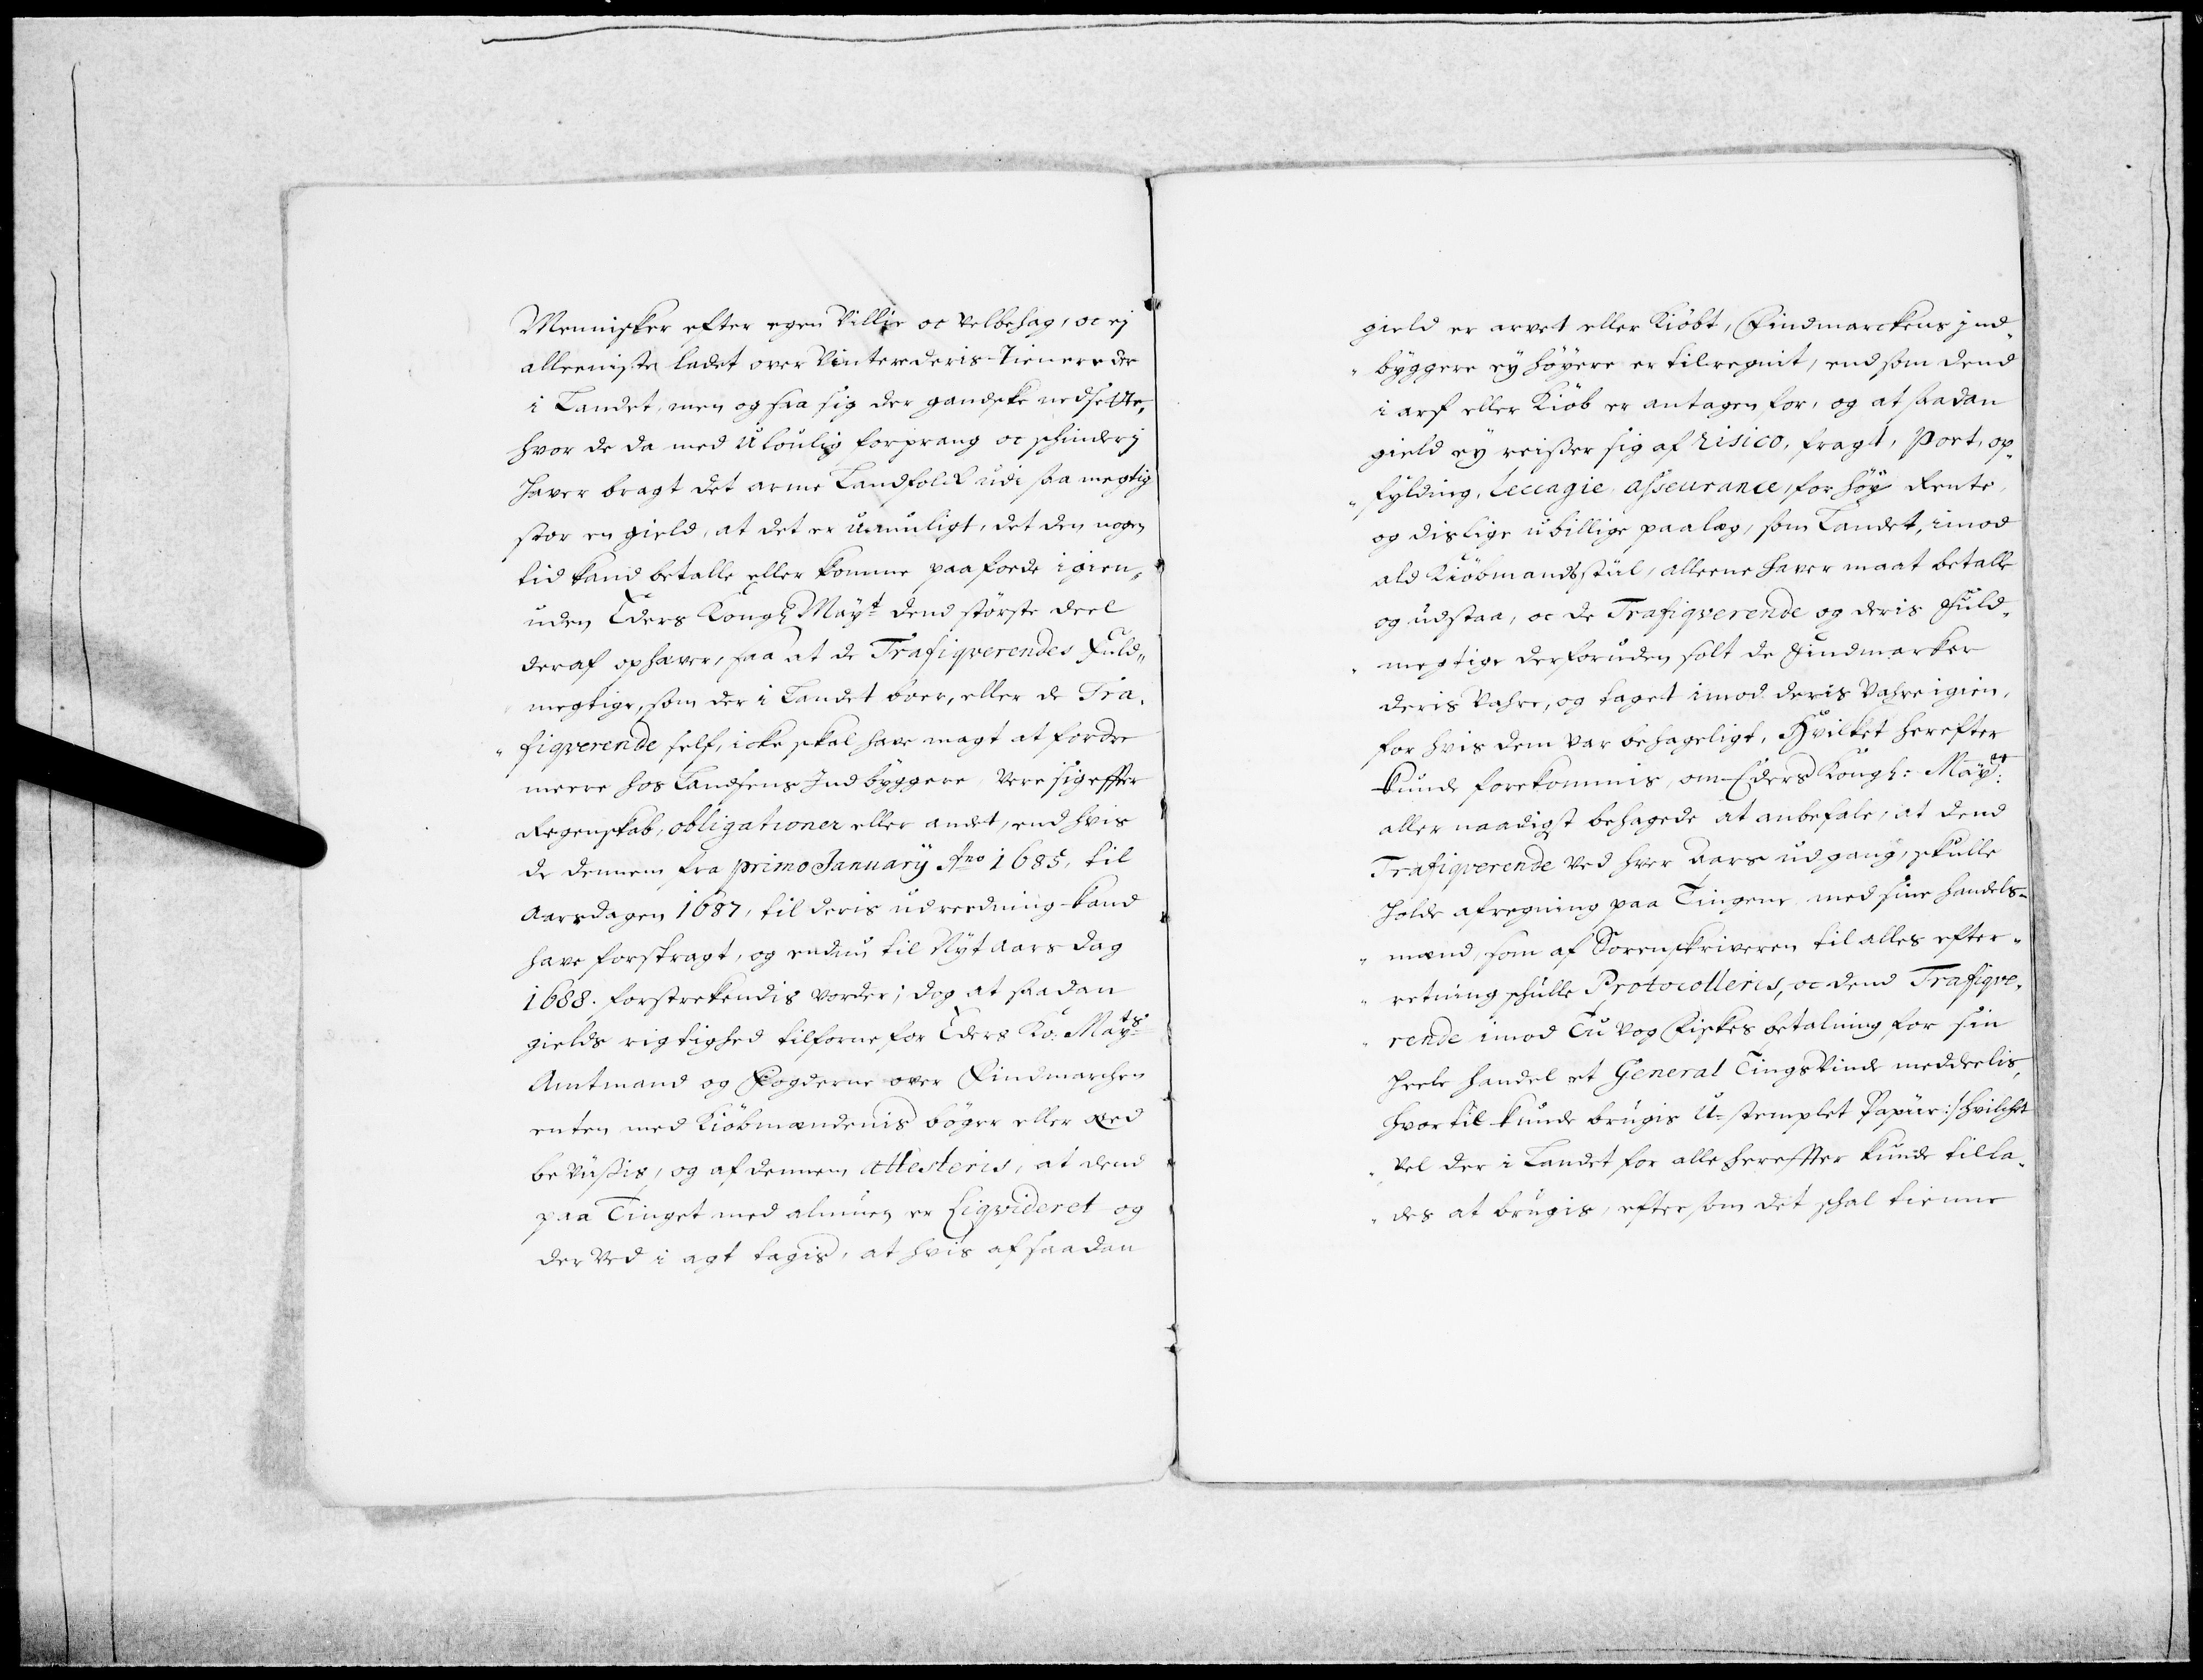 Mennisker efter egen Villie oc velbehag, oc ej
alleeniste ladet over Vintere deris Tienere der
i Landet, men og saa sig der gandske nedsette,
hvor de da med Uloulig forprang oc schinderj
haver bragt det arme Landfolck udi saa megtig
stor en gield, at det er u-muligt, det den nogen
tid kand betalle eller komme paa foede igien,,
uden Eders Kongl Mayt dend største deel
deraf ophæver, saa at de Trafiqverendes Fuld,,
megtige, som der i Landet boer, eller de Tra,
" fiqverende self, icke skal have magt at fordre
meere hos Landsens Indbyggere være sig effter
Regenskab, obligationer eller andet, end hvis
de dennem fra primo January Ano 1685, til
Aarsdagen 1687, til deris udreedning kand
have forstragt, og endnu til Nyt aars dag
1688. forstrekendis vorder; dog at saadan
gields rigtighed tilforne for Eders Ko: Mayts
Amtmand og Fogderne over Findmarchen
enten med Kiöbmændenis bøger eller Red
bevüssis, og af dennem attesteris, at dend
paa Tinget med almuen er Liqvideret og
der ved i agt tagis, at hvis af saadan
gield er arvet eller Kiöbt, Findmarckens jnd,
" byggere ey höyere er tilregnit, end som dend
i arf eller Kiöb er antagen for, og at saadan
gield ey reisser sig af risico, fragt, Port, op,
" fylding, leccagie, asseurance, for höy Rente,
og dislige ubillige paalæg, som Landet, imod
ald Kiöbmandsstiil, alleene haver maat betalle
og udstaa, oc de Trafiqverende og deris Fuld,
" megtige derforuden solt de Findmarker
deris Vahre, og taget imod deris Vahre igien,
for hvis dem var behageligt, Hvilket herefter
kunde forekommis, om Eders Kongl: Mayt:
aller naadigst behagede at anbefale, at dend
Trafiqverende ved hver Aars udgang, skulle
holde afregning paa Tingene med sine handels-
" mænd, som af Sorenskriveren til alles efter"
" retning schulle Protocolleris, oc dend Trafiqve,
" rende imod Tu vog Fiskes betalning for sin
heele handel et General Tings Vinde meddeelis,
hvortil kunde brugis U-stemplet Papiir:/hvilchet
" vel der i Landet for alle hereffter kunde tilla,
" des at brugis, efter som det schal tienne